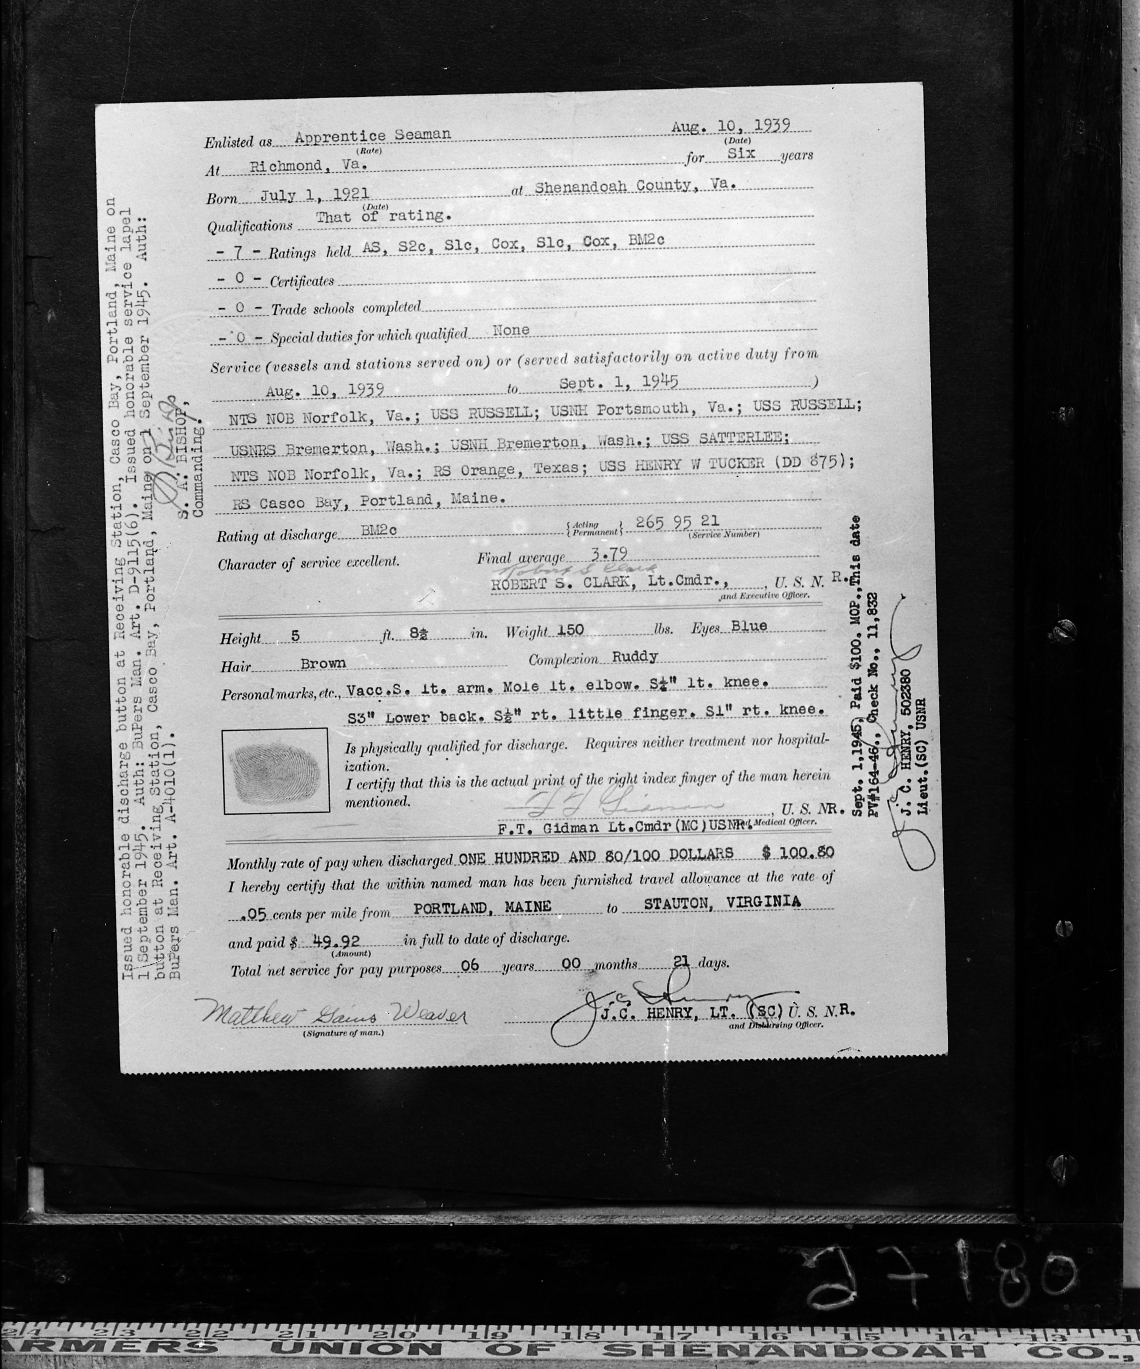 Enlisted as Apprentice Seaman Aug. 10, 1939
(Rate) (Date)
At Richmond, Va. for Six years
Born July 1, 1921 at Shenandoah County, Va.
(Date)
Qualifications That of rating.
- 7 - Ratings held AS, S2c, S1c, Cox, S1c, Cox, BM2c
- 0 - Certificates
- 0 - Trade schools completed
- 0 - Special duties for which qualified None
Service (vessels and stations served on) or (served satisfactorily on active duty from
Aug. 10, 1939 to Sept. 1, 1945 )
NTS NOB Norfolk, Va.; USS RUSSELL; USNH Portsmouth, Va.; USS RUSSELL;
USNRS Bremerton, Wash.; USNH Bremerton, Wash.; USS SATTERLEE;
NTS NOB Norfolk, Va.; RS Orange, Texas; USS HENRY W TUCKER (DD 875);
RS Casco Bay, Portland, Maine.
Rating at discharge BM2c {Acting Permanent} 265 95 21
(Service Number)
Character of service excellent. Final average 3.79
Robert S Clark
ROBERT S. CLARK, Lt.Cmdr., , U. S. N. R.
and Executive Officer.
Height 5 ft. 8½ in. Weight 150 lbs. Eyes Blue
Hair Brown Complexion Ruddy
Personal marks, etc., Vacc.S. lt. arm. Mole lt. elbow. S½" lt. knee.
S3" Lower back. S½" rt. little finger. S1" rt. knee.
Is physically qualified for discharge. Requires neither treatment nor hospital-
ization.
I certify that this is the actual print of the right index finger of the man herein
mentioned.
F T Gidman , U. S. NR.
F.T. Gidman Lt.Cmdr(MC)USNR. Medical Officer.
Monthly rate of pay when discharged ONE HUNDRED AND 80/100 DOLLARS $ 100.80
I hereby certify that the within named man has been furnished travel allowance at the rate of
.05 cents per mile from PORTLAND, MAINE to STAUTON, VIRGINIA
and paid $ 49.92 in full to date of discharge.
(Amount)
Total net service for pay purposes 06 years 00 months 21 days.
Matthew Gains Weaver J.C. Henry
(Signature of man.) J.C. HENRY, LT. (SC) U. S. N.R.
and Disbursing Officer.
Issued honorable discharge button at Receiving Station, Casco Bay, Portland, Maine on
1 September 1945. Auth: BuPers Man. Art. D-9115(6). Issued honorable service lapel
button at Receiving Station, Casco Bay, Portland, Maine on 1 September 1945. Auth:
BuPers Man. Art. A-4010(1).
S. A. BISHOP,
Commanding.
Sept. 1,1945, Paid $100. MOP.,This date
PV#164-46., Check No., 11,832
J. C. HENRY, 502380
Lieut.(SC) USNR
27180
24 23 22 21 20 19 18 17 16 15 14 13
FARMERS UNION OF SHENANDOAH CO.,